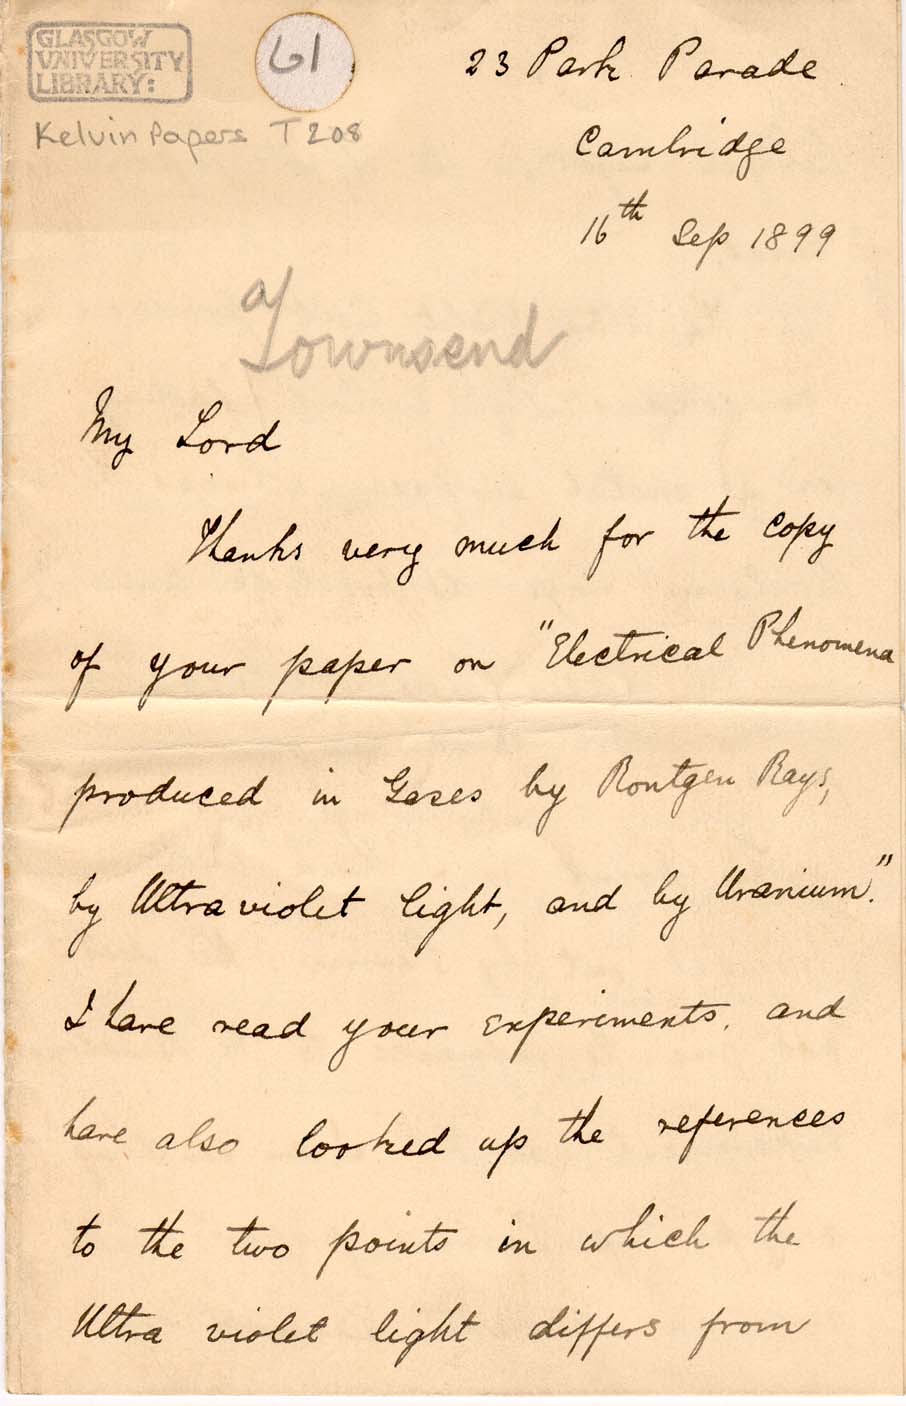 GLASGOW
UNIVERSITY
LIBRARY:
61
Kelvin Papers T208
23 Park Parade
Cambridge
16th Sep 1899
Townsend
My Lord
Thanks very much for the copy
of your paper on "Electrical Phenomena
produced in Gases by Rontgen Rays,
by Ultra violet light, and by Uranium."
I have read your experiments. and
have also looked up the references
to the two points in which the
Ultra violet light differs from